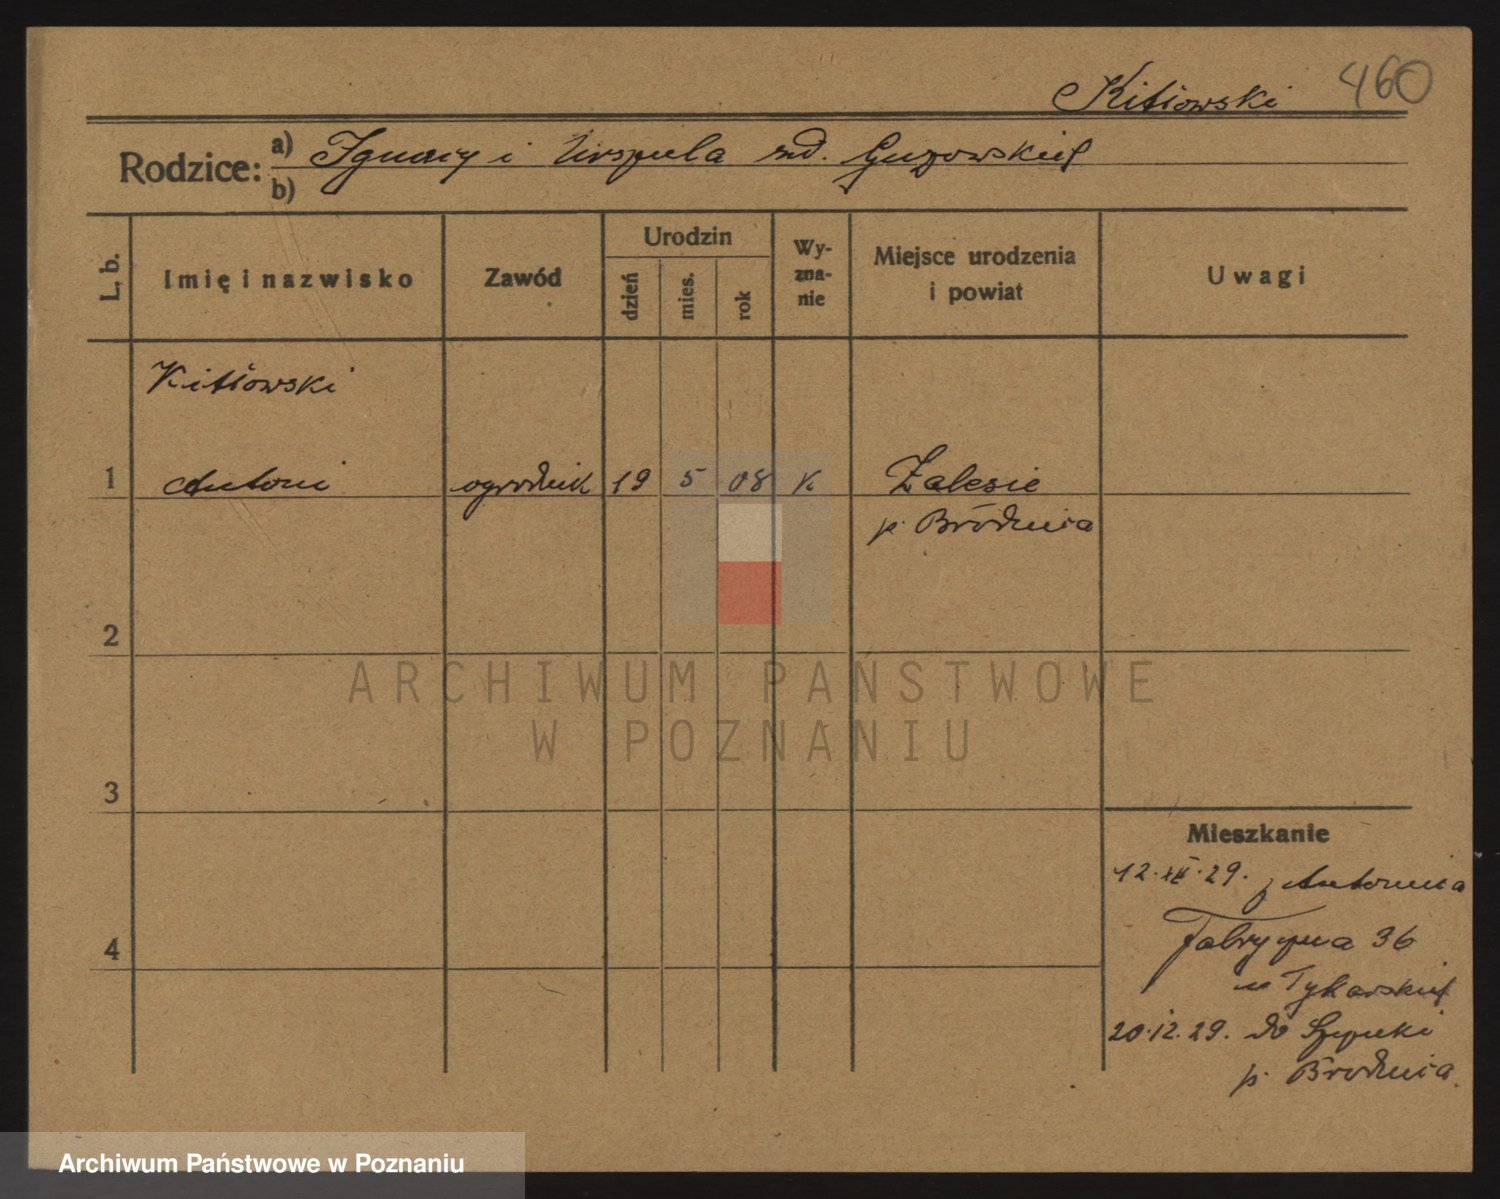 460
Kitłowski
Rodzice: a) Ignacy i Urszula zd. Guzowskich
b)
L. b.
Imię i nazwisko
Zawód
Urodzin
dzień
mies.
rok
Wy-
zna-
nie
Miejsce urodzenia
i powiat
Uwagi
Kitłowski
1 Antoni ogrodnik 19 5 08 K Zalesie
p. Brodnica
2
3
4
Mieszkanie
12.XII.29. z Antonina
Fabryczna 36
u
20.12.29. do
p. Brodnica
ARCHIWUM PAŃSTWOWE
W POZNANIU
Archiwum Państwowe w Poznaniu